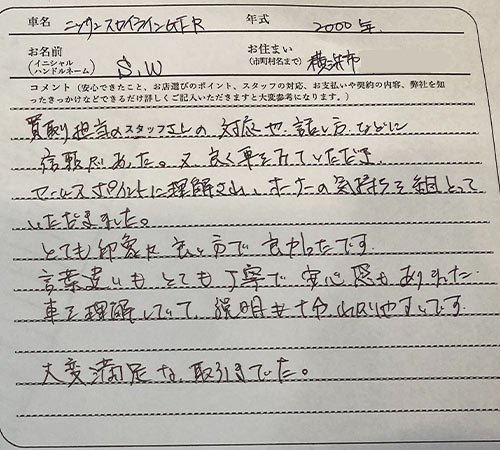 車名 ニッサンスカイラインGTR 年式 2000年
お名前 お住まい
(イニシャル (市町村名まで) 横浜市
ハンドルネーム) S.W
コメント (安心できたこと、お店選びのポイント、スタッフの対応、お支払いや契約の内容、弊社を知
ったきっかけなどできるだけ詳しくご記入いただきますと大変参考になります。)
買取り担当のスタッフさんの対応や、話し方などに
信頼があった。又、良く車を見ていただき
セールスポイントに理解され、オーナーの気持ちを組とって
いただきました。
とても印象に良い方で良かったです
言葉遣いもとても丁寧で安心感もありました
車を理解していて、説明も十分 わかりやすいです
大変満足な取引きでした。